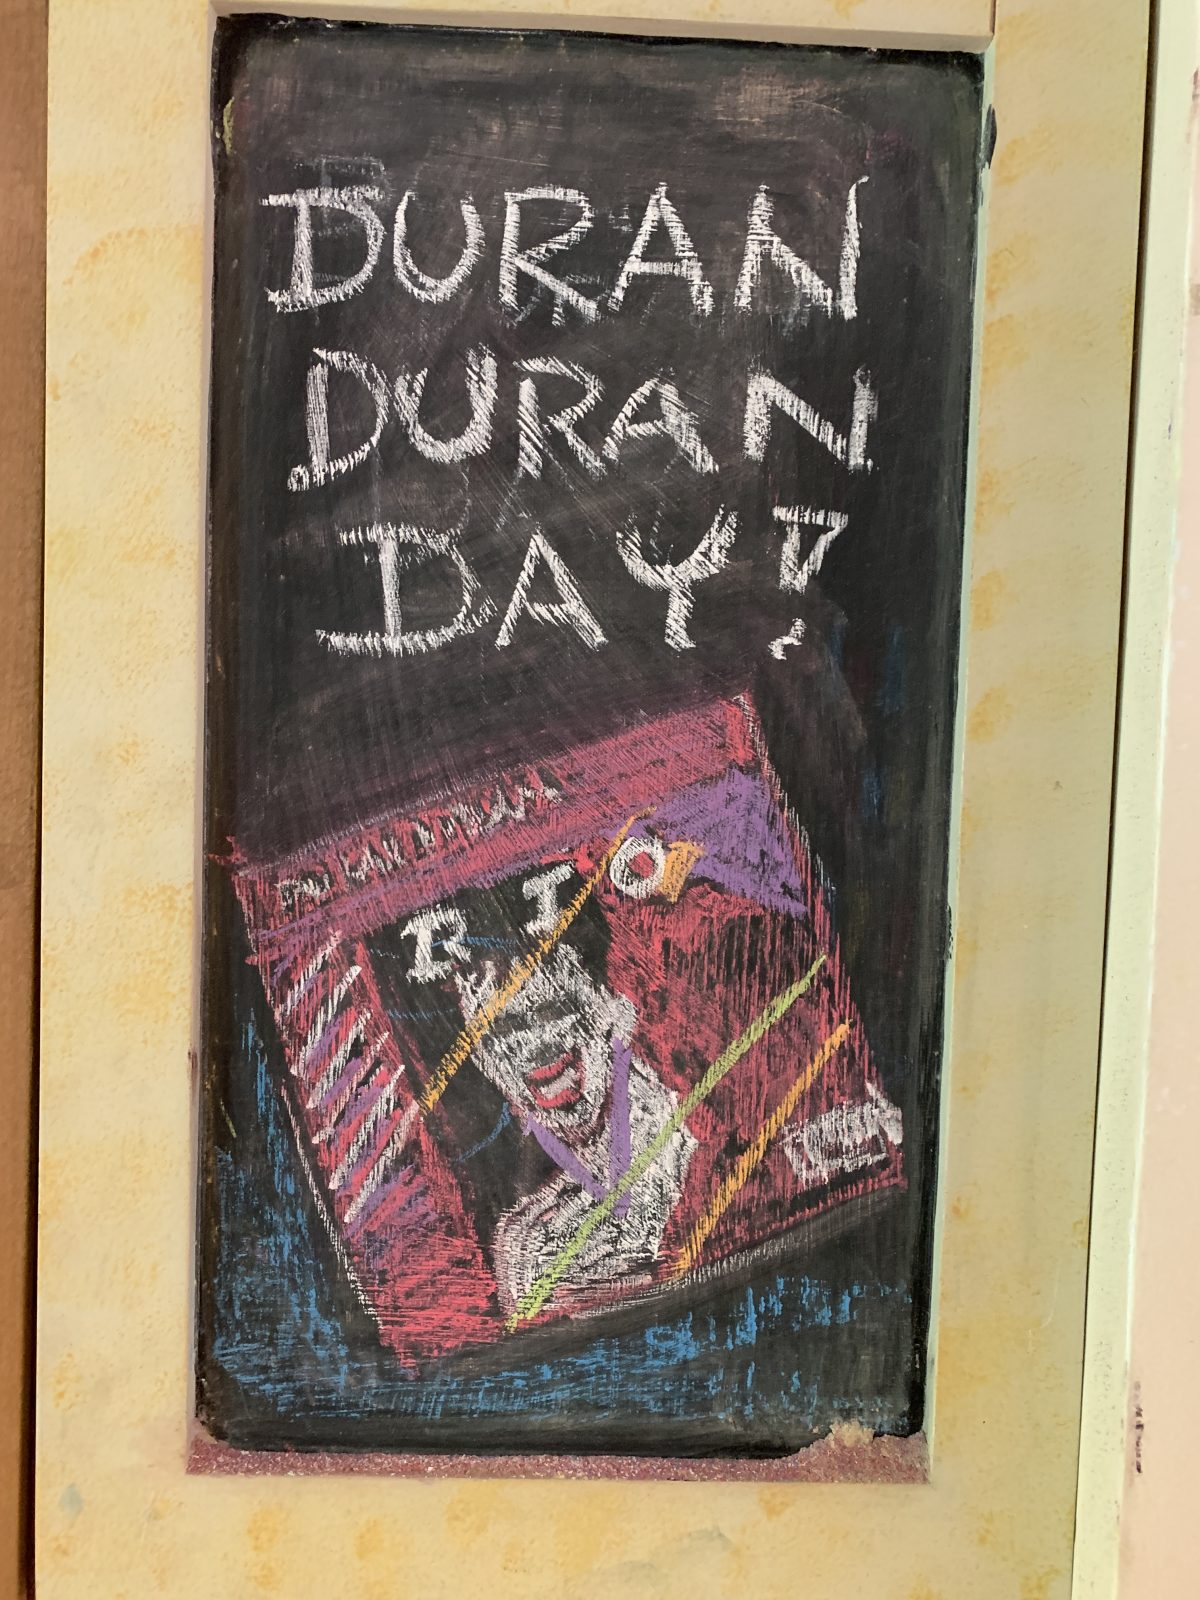 DURAN
DURAN
DAY!
RIO